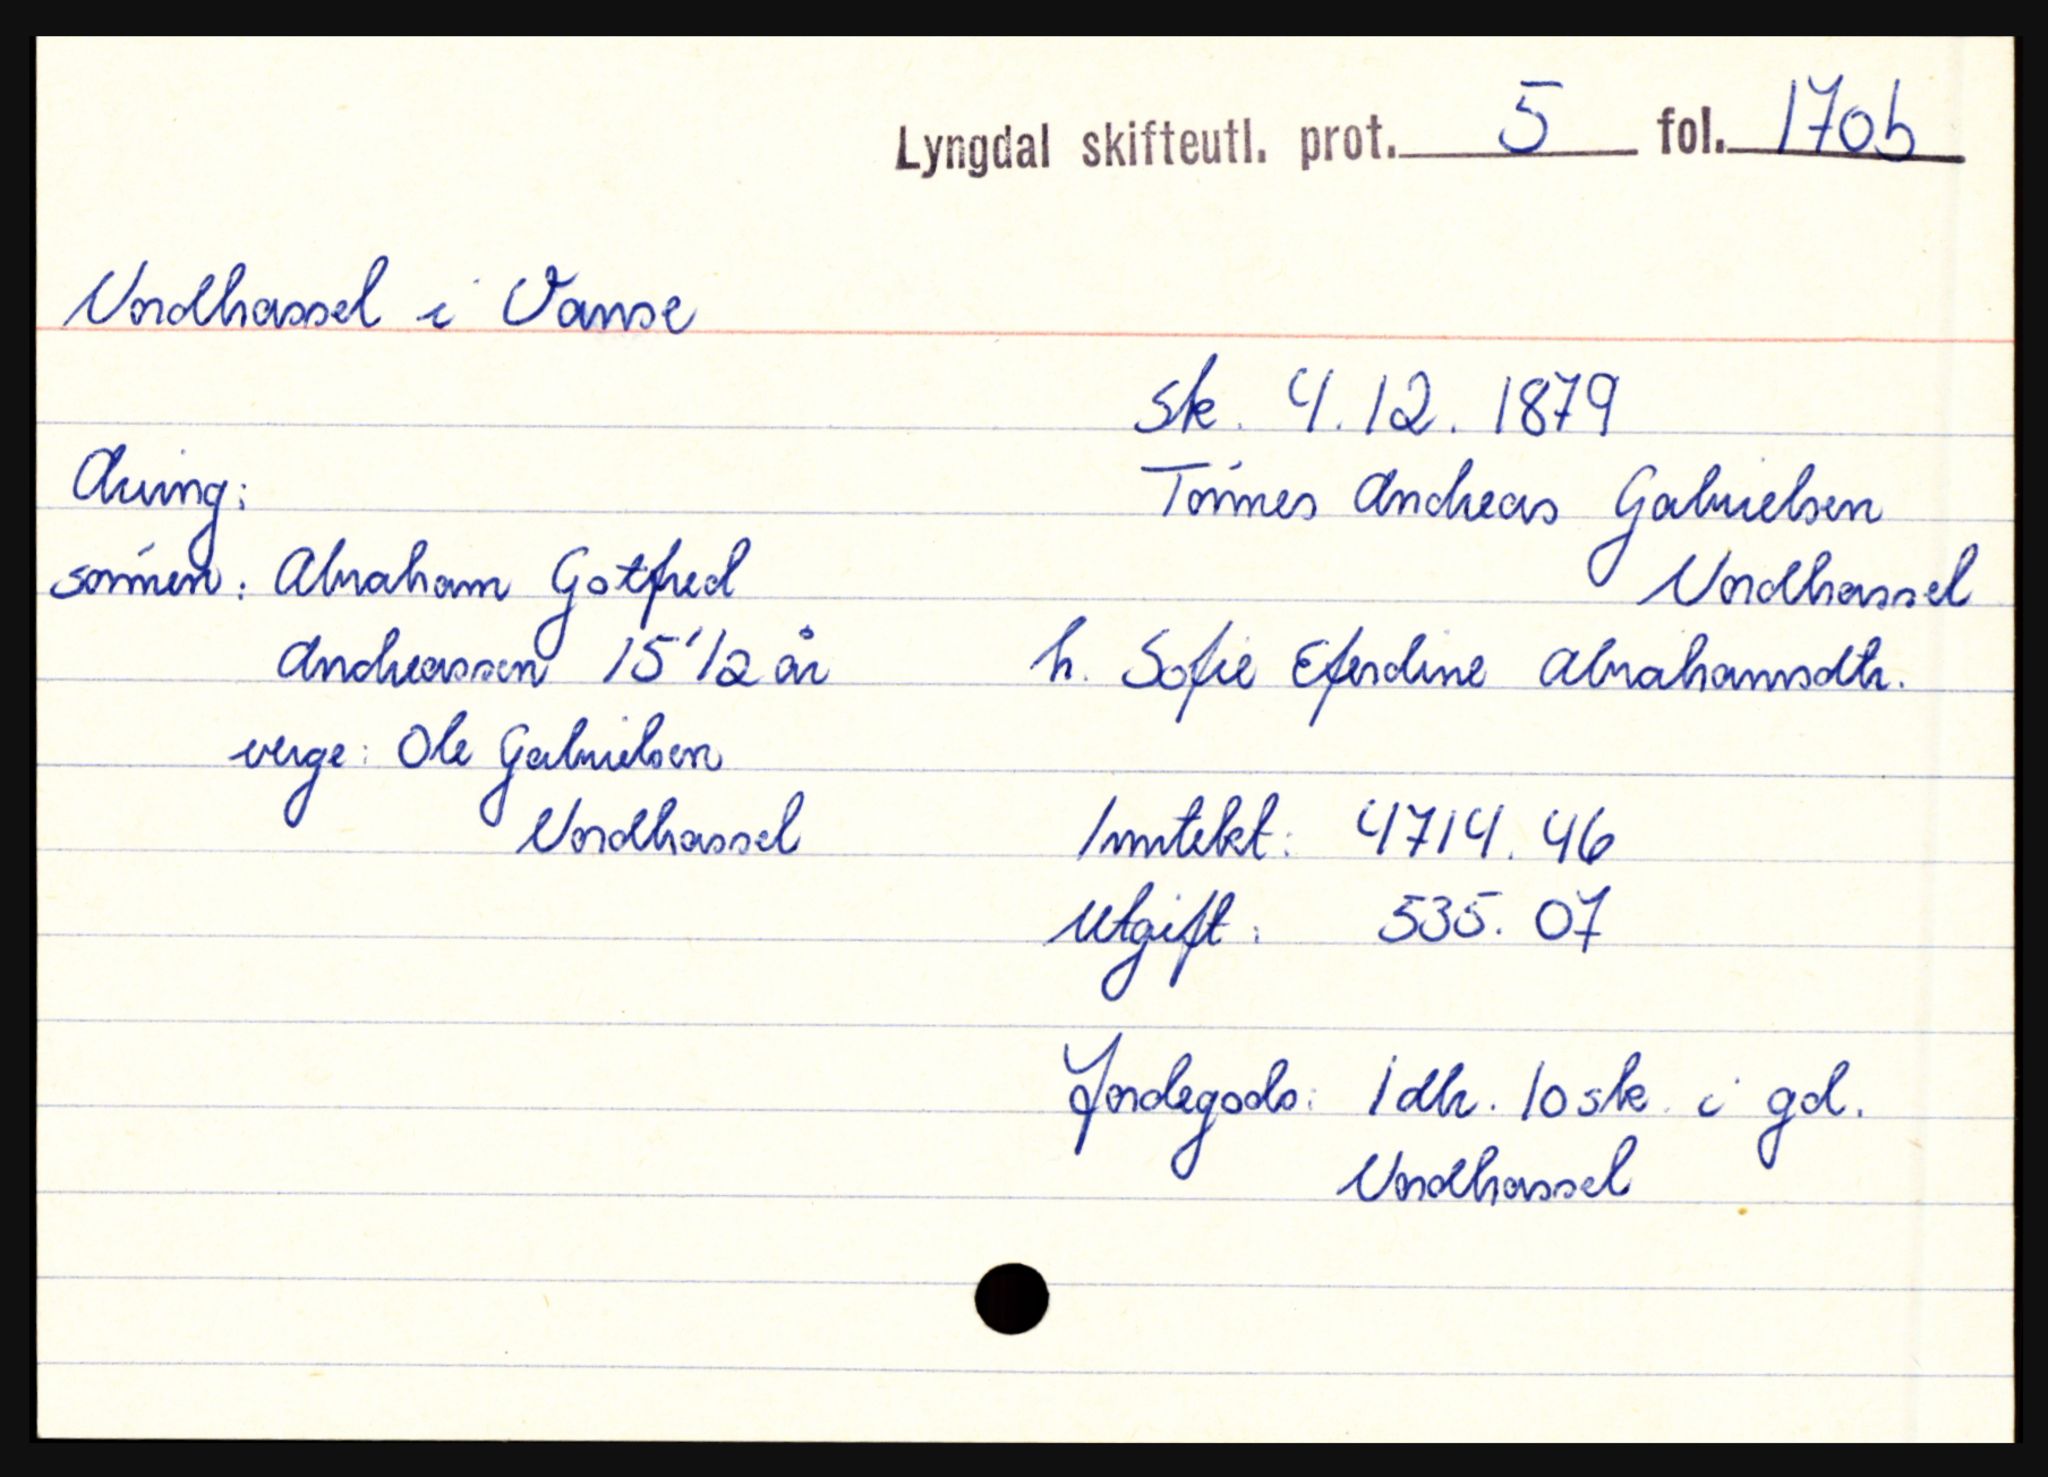 Lyngdal skifteutl. prot. 5 fol. 170b
Nordhassel i Vanse
sk. 4.12.1879
Tønnes Andreas Gabrielsen
Nordhassel
h. Sofie Eferdine Abrahamsdtr.
Inntekt: 4714.46
Utgift: 535.07
Jordegods: 1 dlr. 10 sk. i gd.
Nordhassel
Arving:
sønnen: Abraham Gotfred
Andreassen 15 1/2 år
verge: Ole Gabrielsen
Nordhassel